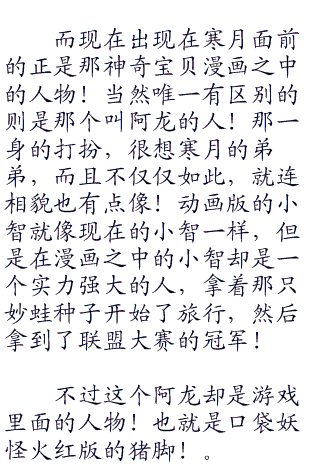 而现在出现在寒月面前
的正是那神奇宝贝漫画之中
的人物！当然唯一有区别的
则是那个叫阿龙的人！那一
身的打扮，很想寒月的弟
弟，而且不仅仅如此，就连
相貌也有点像！动画版的小
智就像现在的小智一样，但
是在漫画之中的小智却是一
个实力强大的人，拿着那只
妙蛙种子开始了旅行，然后
拿到了联盟大赛的冠军！
不过这个阿龙却是游戏
里面的人物！也就是口袋妖
怪火红版的猪脚！。